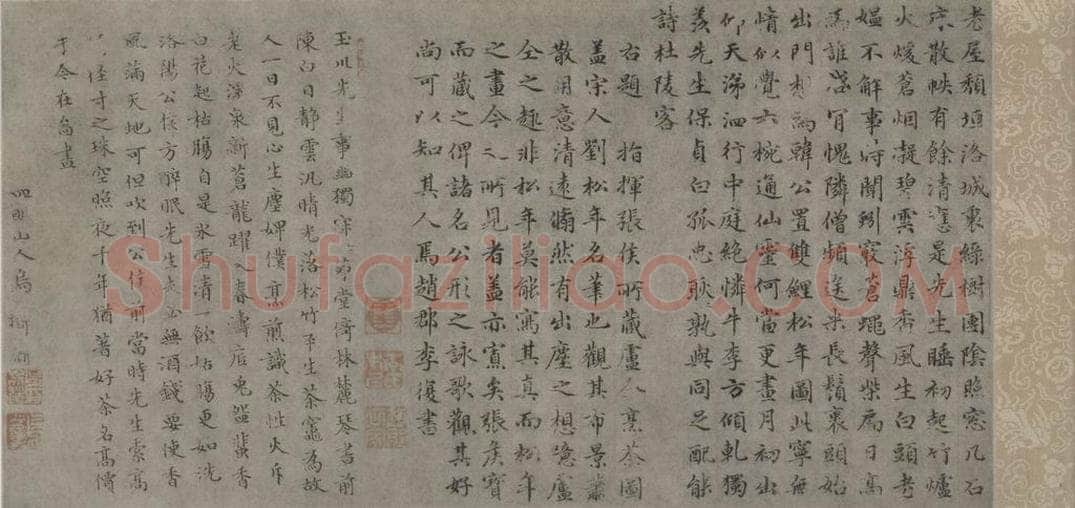 老屋頹垣洛城裏綠樹團陰照窓几石
床散帙有餘清應是先生睡初起竹爐
火煖蒼烟凝碧雲浮鼎香風生白頭老
媪不解事時聞蒼蠅聲柴扃日高
為誰啓肯愧隣僧頻送米長鬚裹頭始
出門想為韓公置雙鯉松年圖此寧無
情似覺六椀通仙靈何當更畫月初出
仰天涕泗行中庭絶憐牛李方傾軋獨
羨先生保貞白孤忠耿孰與同足配能
詩杜陵客
右題 指揮張侯所藏盧仝烹茶圖
蓋宋人劉松年名筆也觀其布景蕭
散用意清遠翛然有出塵之想隱盧
仝之趣非松年莫能寫其真而松年
之畫今之所見者蓋亦寡矣張侯寶
而藏之俾諸名公形之詠歌觀其好
尚可以知其人焉趙郡李復書
玉川先生事幽獨穿草堂齊林麓琴書前
陳白日靜雲汎晴光落松竹平生茶竈為故
人一日不見心生塵婢僕烹煎識茶性火
火深泉新龍躍入春濤香
白花起枯腸自是氷雪清一飲枯腸更如洗
洛陽公侯方醉眠先生無酒錢要使香
風滿天地可但吹到公前當時先生索高
徑寸之珠空照夜千年猶著好茶名高情
于今在畫
四明山人烏
Shufaziliao.com